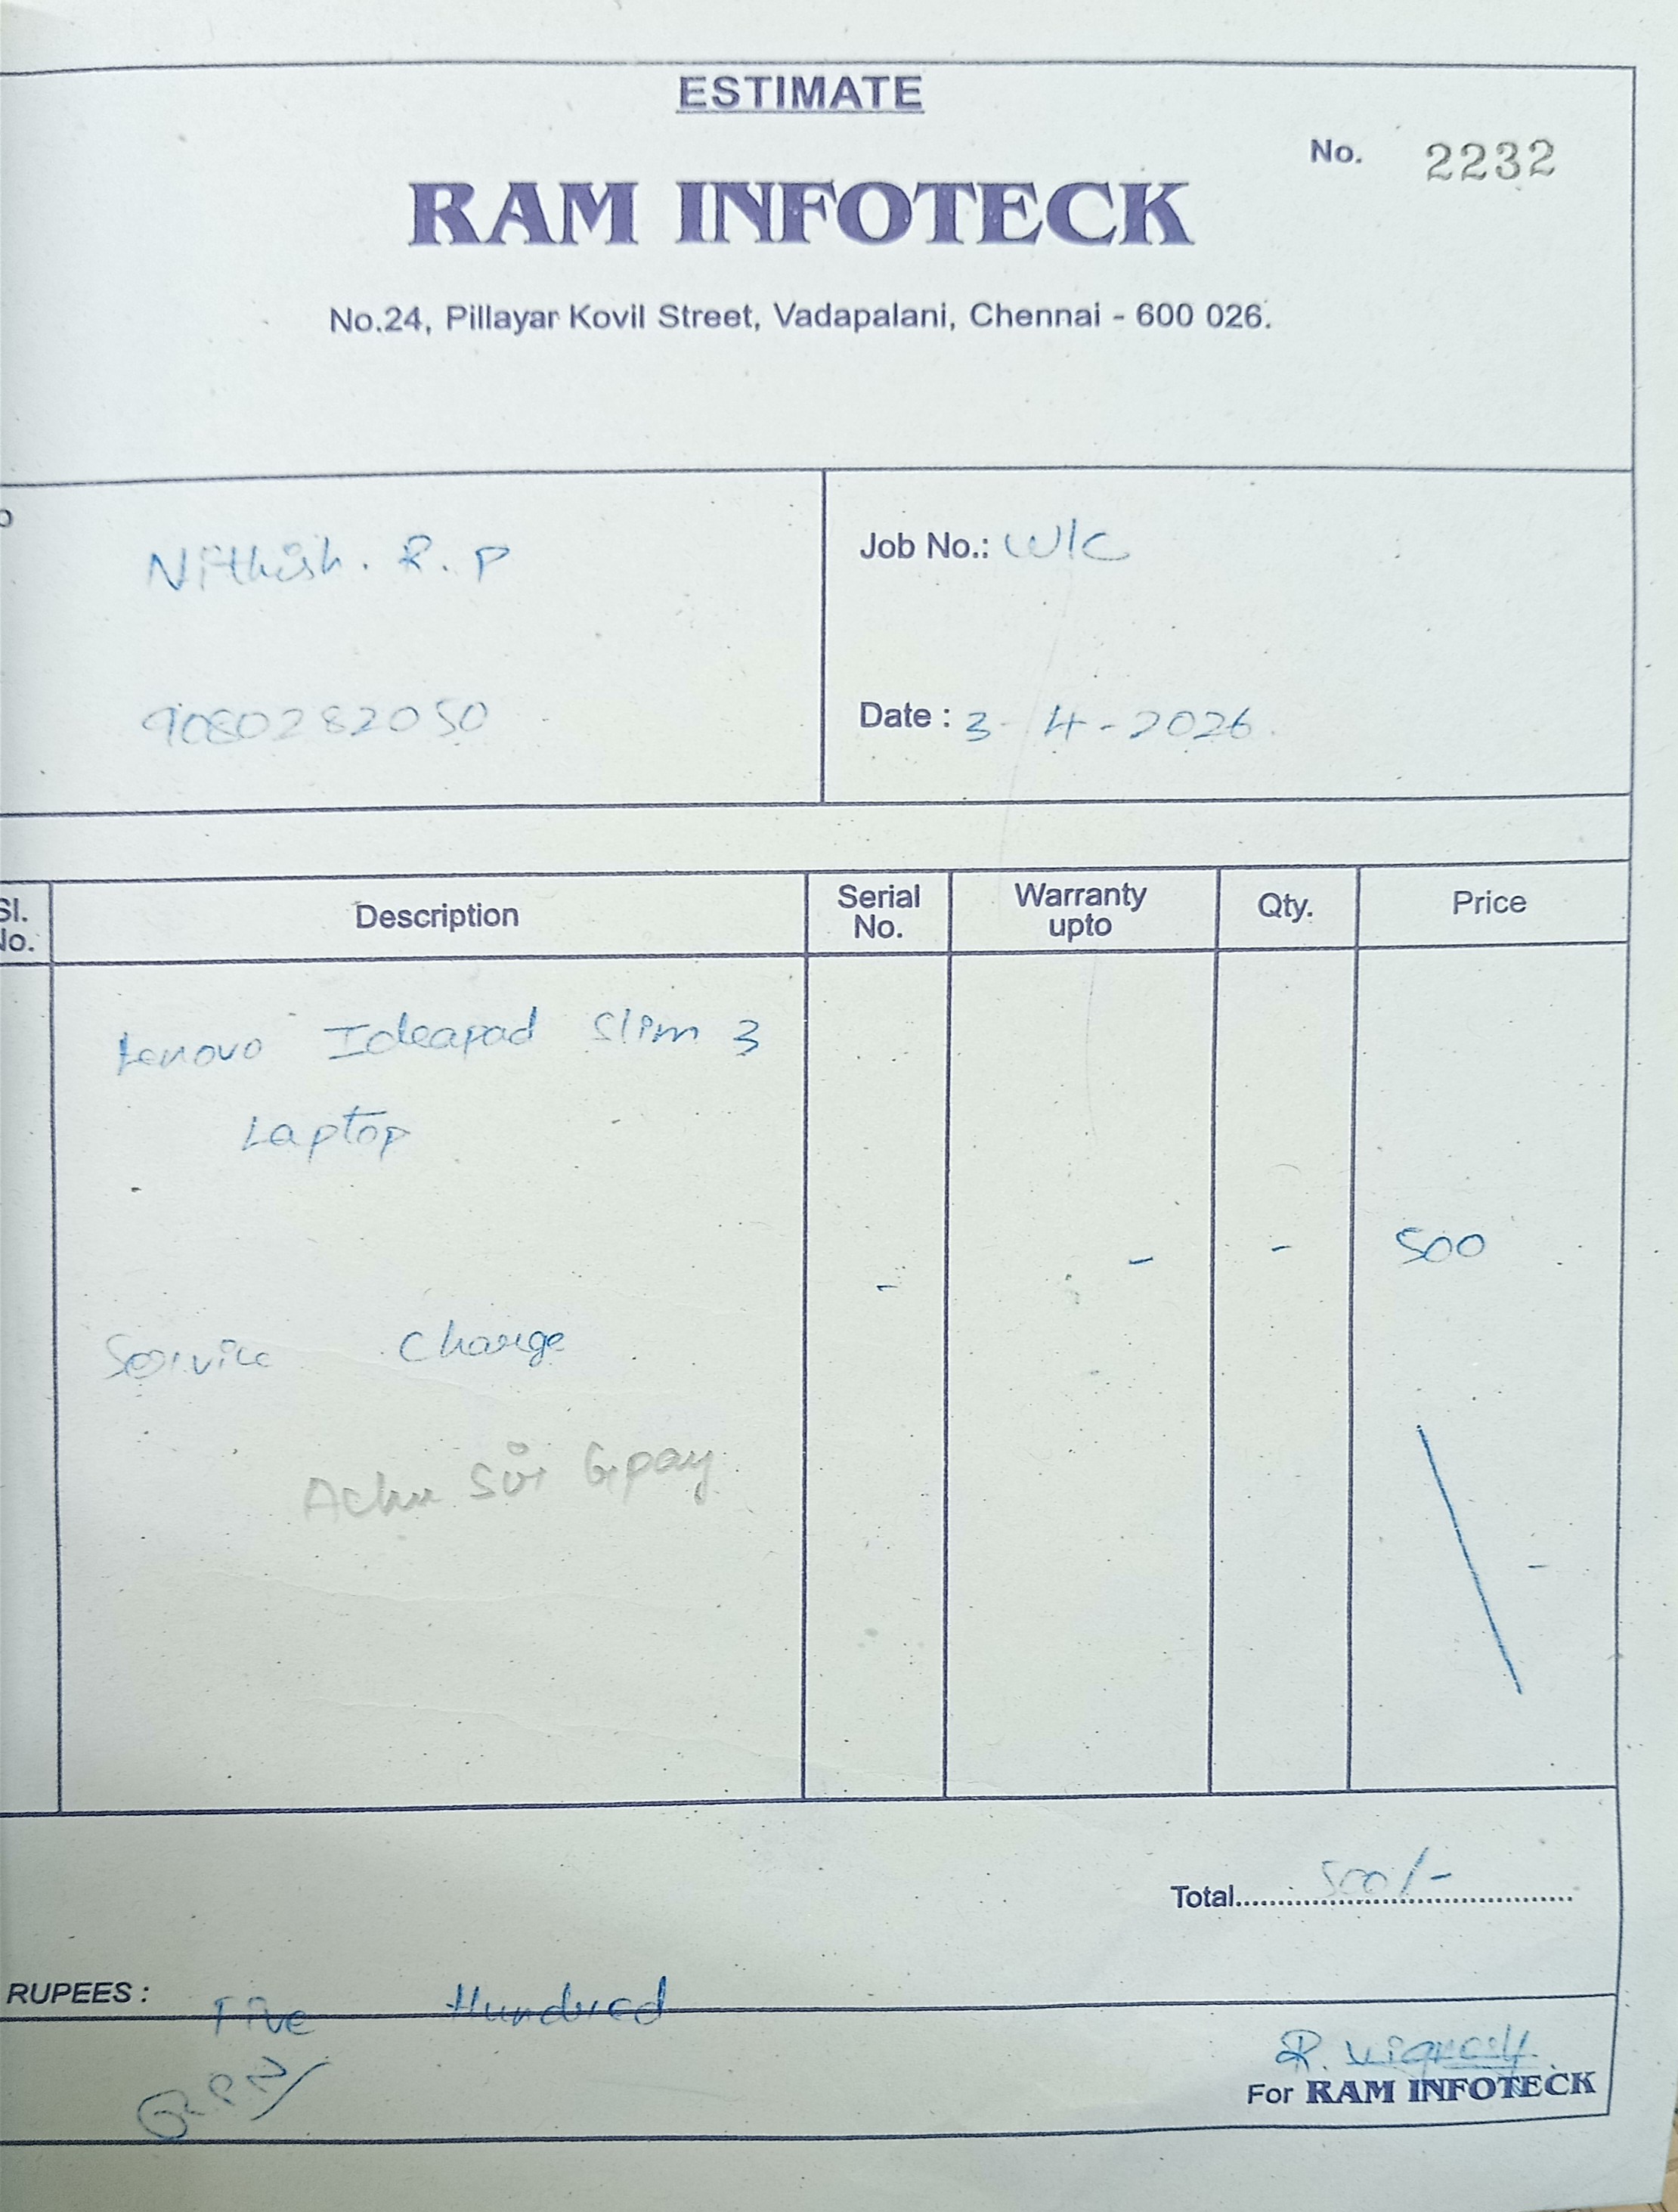 ESTIMATE
No. 2232
RAM INFOTECK
No.24, Pillayar Kovil Street, Vadapalani, Chennai - 600 026.
Nithish. R. P
Job No.: W/C
9080282050
Date : 3-4-2026
Sl. No. Description Serial No. Warranty upto Qty. Price
Lenovo Ideapad Slim 3
Laptop
- - - 500
Service Charge
Achu Sir Gpay
Total 500/-
RUPEES : Five Hundred
R. Vignesh
For RAM INFOTECK